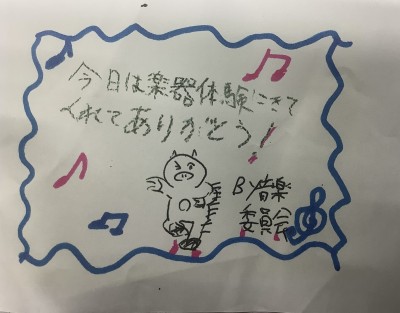 今日は楽器体験にきて
くれてありがとう!
By音楽
委員会